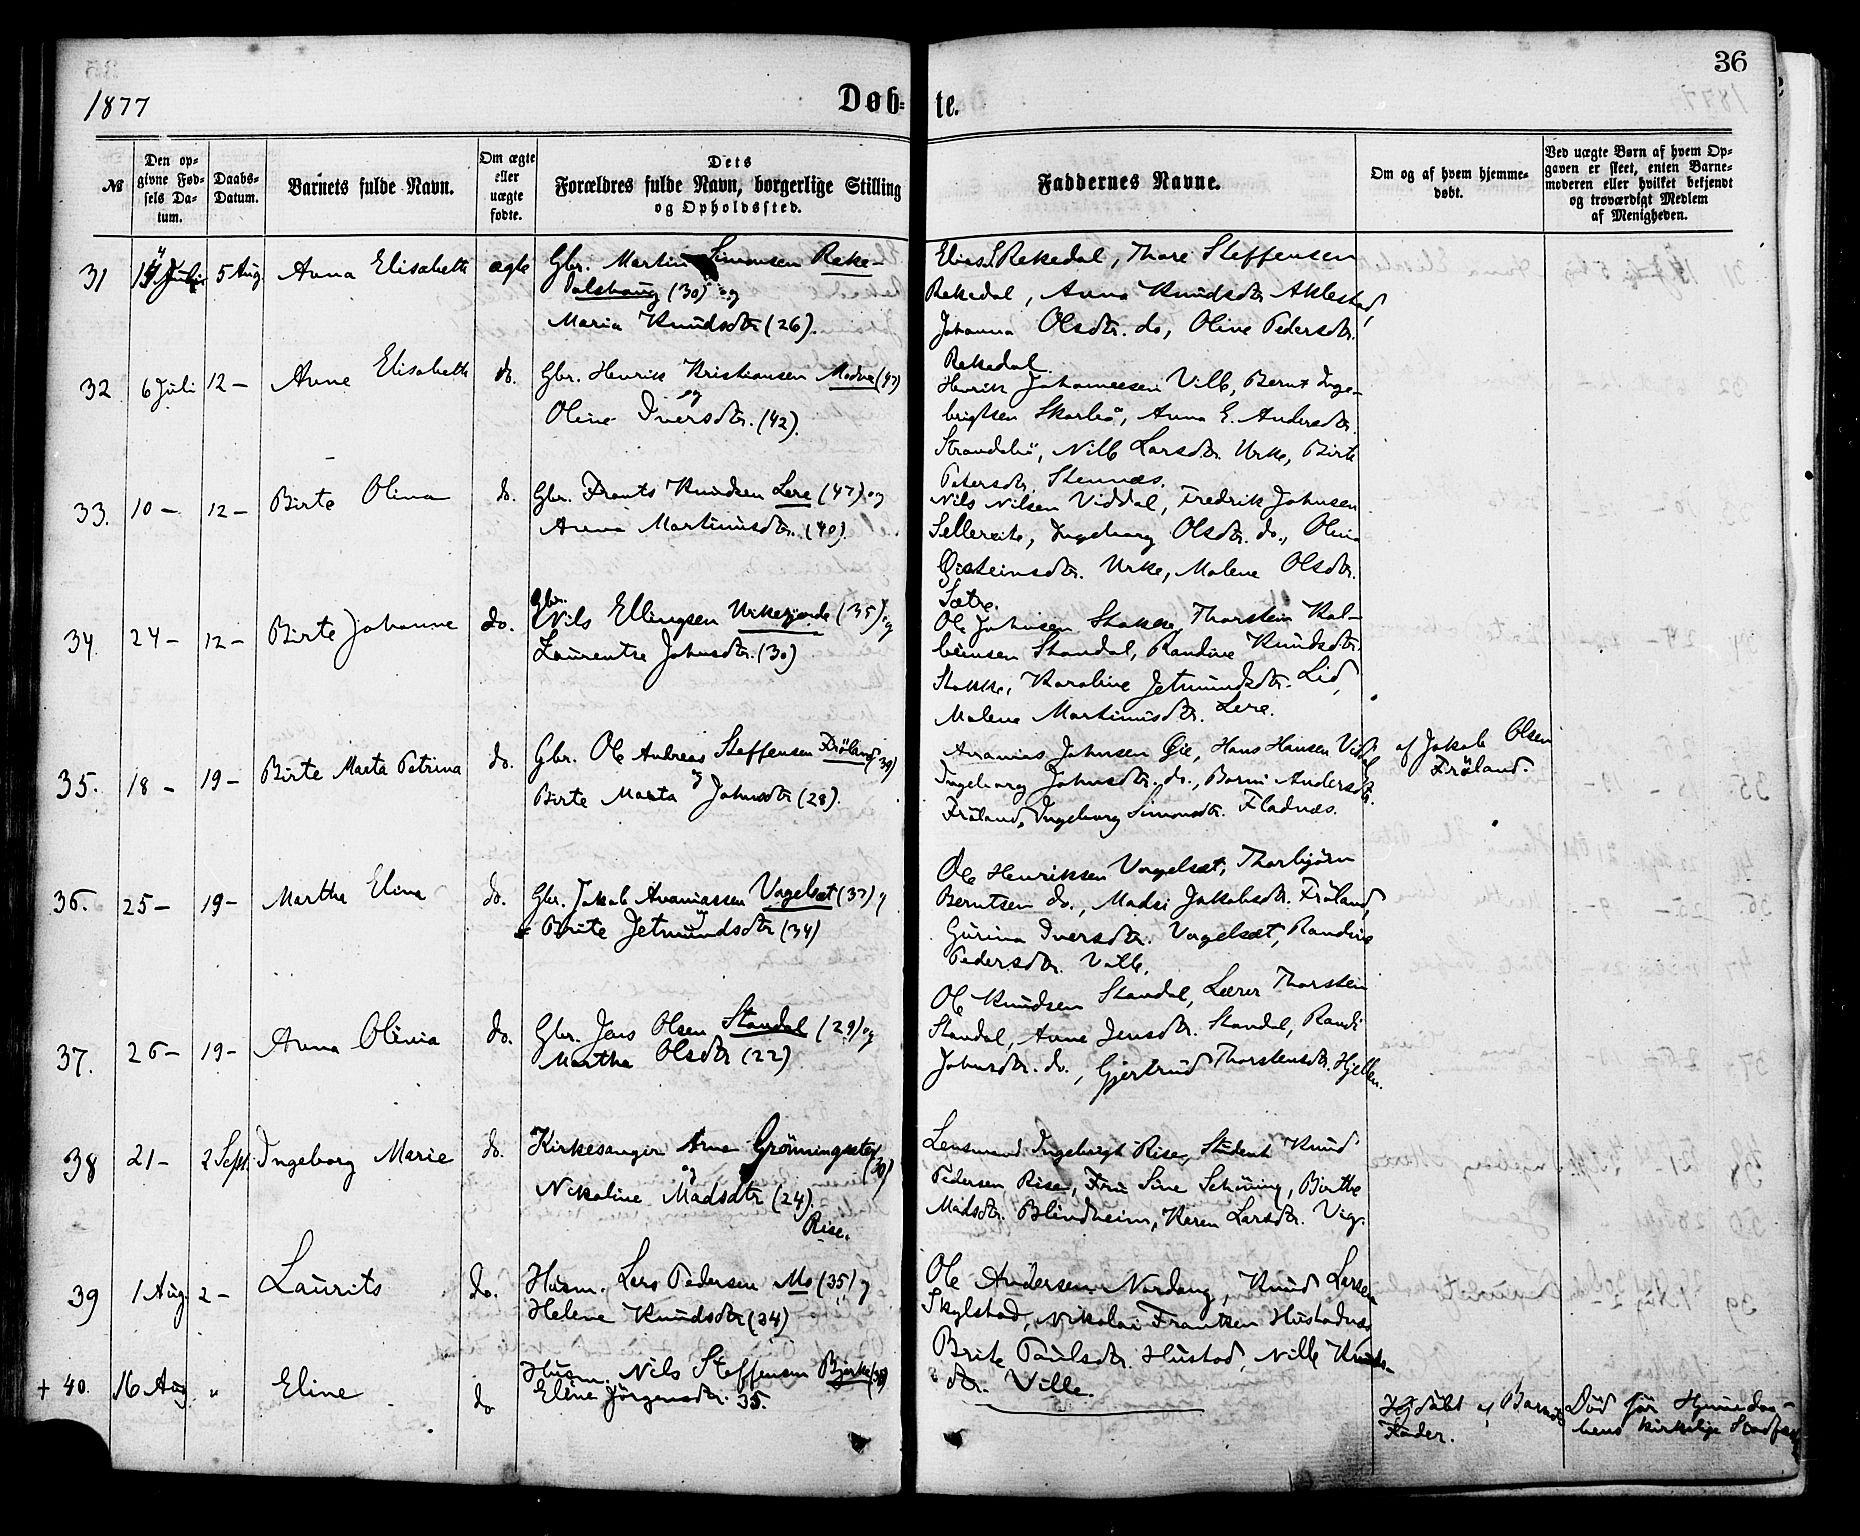 36
1877
Døb-
te.
№
Den op-
givne Fød-
sels Da-
tum.
Daabs-
Datum.
Barnets fulde Navn.
Om ægte
eller
uægte
fødte.
Dets
Forældres fulde Navn, borgerlige Stilling
og Opholdssted.
Faddernes Navne.
Om og af hvem hjemme-
døbt.
Ved uægte Børn af hvem Op-
gaven er skeet, enten Barne-
moderen eller hvilket bekjendt
og troværdigt Medlem
af Menigheden.
31 Juli 5 Aug Anna Elisabeth ægte Gbr. Martin Simonsen Reke-
dalshaug (30) og
Maria Knudsdtr (26).
Elias Rekedal, Thore Steffensen
Rekedal, Anna Knudsdtr Aklestad,
Johanna Olsdtr. do, Oline Pedersdtr.
Rekedal.
32 6 Juli 12 – Anne Elisabeth do. Gbr. Henrik Kristiansen (47)
og
Oline Iversdtr. (42).
Henrik Johannesen Ville, Bernt Inge-
brigtsen Skarbö, Anna E. Andersdtr.
Strandebö, Nille Larsdtr. Urke, Birte
Petersdtr. Stennæs.
33. 10 – 12 – Birte Olina do. Gbr. Frants Knudsen Lere (47) og
Anna Martinusdtr. (40).
Nils Nilsen Viddal, Fredrik Johnsen
Sellereite, Ingeborg Olsdtr. do., Olina
Øisteinsdtr. Urke, Malene Olsdtr.
Sætre.
34. 24 – 12 – Birte Johanne do. Gbr.
Nils Ellingsen Urkegjerde (35) og
Laurentse Johnsdtr. (30)
Ole Johnsen Stokke, Thorstein Kol-
beinsen Standal, Randine Knudsdtr.
Stokke, Karoline Jetmundsdtr. Lid,
Malene Martinusdtr. Lere.
35. 18 – 19 – Birte Marta Petrina do. Gbr. Ole Andreas Steffensen Fröland (39)
og
Birte Marta Johnsdtr (28).
Ananias Johnsen Øie, Hans Hansen Viddal,
Ingeborg Johnsdtr. do., Andersdtr.
Fröland, Ingeborg Simonsdtr. Fladnæs.
af Jakob Olsen
Fröland.
36. 25 – 19 – Martha Elina do. Gbr. Jakob Ananiassen Vagelsæt (37) og
Brite Jetmundsdtr (34)
Ole Henriksen Vagelsæt, Thorbjörn
Berntsen do., Madsi Jakobsdtr. Fröland,
Gurina Iversdtr. Vagelsæt, Randine
Pedersdtr. Ville.
37. 26 – 19 – Anna Olivia do. Gbr. Jens Olsen Standal (29) og
Martha Olsdtr (22)
Ole Knudsen Standal, Lærer Thorstein
Standal, Anne Jensdtr. Standal, Randi
Johnsdtr. do., Gjertrud Thorstensdtr. Hjellen.
38 21 – 2 Sept. Ingeborg Marie do. Kirkesanger Arne Grönningsæter (30)
og
Nikoline Madsdtr (24).
Rise.
Lensmand Ingebrigt Rise, Student Knud
Pedersen Rise, Fru Sine Schöning, Birthe
Madsdtr. Blindheim, Karen Larsdtr. Vig.
39 1 Aug. 2 – Laurits do. Husm. Lars Pedersen Mo (35) og
Helene Knudsdtr (34)
Ole Andersen Nordang, Knud Larsen
Skylstad, Nikolai Frantsen Hustadnæs
Brite Paulsdtr. Hustad, Nille Knuds-
dtr. Ville.
+ 40. 16 Aug. " Eline do Husm. Nils Steffensen Bjørke (38)
Eline Jörgensdtr. 35.
Hjdöbt af Barnets
Fader.
Död før Hjemmedaa-
bens kirkelige Stadfæst